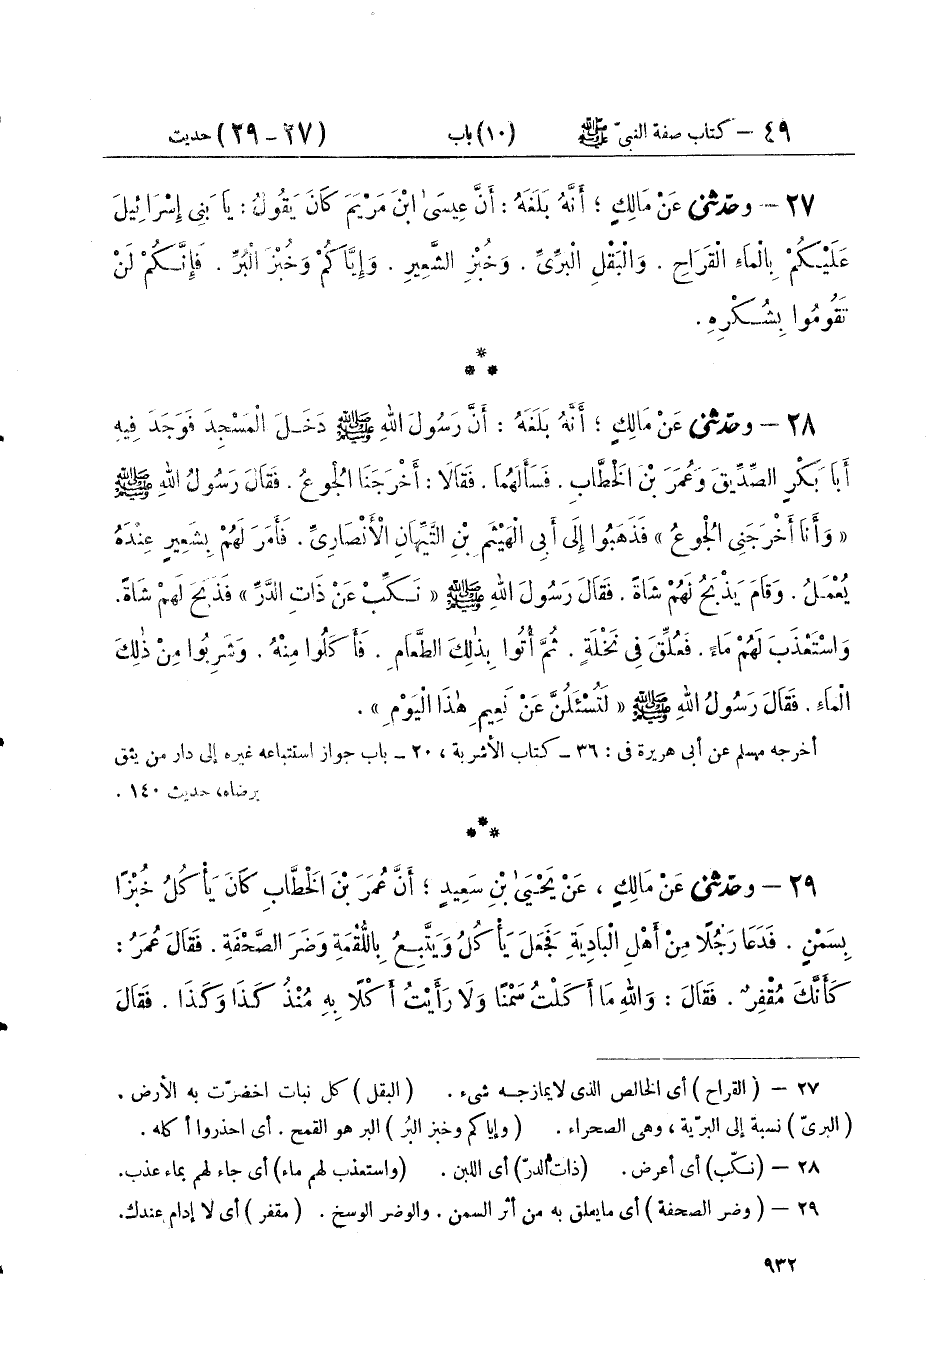 ٤٩ – كتاب صفة النبىّ ﷺ (١٠) باب (٢٧ – ٢٩) حديث
٢٧ – وحدّثنى عَنْ مَالِكٍ ؛ أَنَّهُ بَلَغَهُ : أَنَّ عِيسَىٰ ابْنَ مَرْيَمَ كَانَ يَقُولُ : يَا بَنِى إِسْرَائِيلَ
عَلَيْكُمْ بِالْمَاءِ الْقَرَاحِ . وَالْبَقْلِ الْبَرِّىِّ . وَخُبْزِ الشَّعِيرِ . وَإِيَّاكُمْ وَخُبْزَ الْبُرِّ . فَإِنَّكُمْ لَنْ
تَقُومُوا بِشُكْرِهِ .
*
* *
٢٨ – وحدّثنى عَنْ مَالِكٍ ؛ أَنَّهُ بَلَغَهُ : أَنَّ رَسُولَ اللهِ ﷺ دَخَلَ الْمَسْجِدَ فَوَجَدَ فِيهِ
أَبَا بَكْرٍ الصِّدِّيقَ وَعُمَرَ بْنَ الْخَطَّابِ . فَسَأَلَهُمَا . فَقَالَا : أَخْرَجَنَا الْجُوعُ . فَقَالَ رَسُولُ اللهِ ﷺ
« وَأَنَا أَخْرَجَنِى الْجُوعُ » فَذَهَبُوا إِلَى أَبِى الْهَيْثَمِ بْنِ التَّيِّهَانِ الْأَنْصَارِىِّ . فَأَمَرَ لَهُمْ بِشَعِيرٍ عِنْدَهُ
يُعْمَلُ . وَقَامَ يَذْبَحُ لَهُمْ شَاةً . فَقَالَ رَسُولُ اللهِ ﷺ « نَكِّبْ عَنْ ذَاتِ الدَّرِّ » فَذَبَحَ لَهُمْ شَاةً.
وَاسْتَعْذَبَ لَهُمْ مَاءً . فَعُلِّقَ فِى نَخْلَةٍ . ثُمَّ أُتُوا بِذَٰلِكَ الطَّعَامِ . فَأَكَلُوا مِنْهُ . وَشَرِبُوا مِنْ ذَٰلِكَ
الْمَاءِ . فَقَالَ رَسُولُ اللهِ ﷺ « لَتُسْئَلُنَّ عَنْ نَعِيمِ هَٰذَا الْيَوْمِ » .
أخرجه مسلم عن أبى هريرة فى : ٣٦ – كتاب الأشربة ، ٢٠ – باب جواز استتباعه غيره إلى دار من يثق
برضاه، حديث ١٤٠ .
*
* *
٢٩ – وحدّثنى عَنْ مَالِكٍ ، عَنْ يَحْيَىٰ بْنِ سَعِيدٍ ؛ أَنَّ عُمَرَ بْنَ الْخَطَّابِ كَانَ يَأْكُلُ خُبْزًا
بِسَمْنٍ . فَدَعَا رَجُلًا مِنْ أَهْلِ الْبَادِيَةِ فَجَعَلَ يَأْكُلُ وَيَتَّبِعُ بِاللُّقْمَةِ وَضَرَ الصَّحْفَةِ . فَقَالَ عُمَرُ :
كَأَنَّكَ مُقْفِرٌ . فَقَالَ : وَاللهِ مَا أَكَلْتُ سَمْنًا وَلَا رَأَيْتُ أَكْلًا بِهِ مُنْذُ كَذَا وَكَذَا . فَقَالَ
٢٧ – ( القراح ) أى الخالص الذى لايمازجه شىء . ( البقل ) كل نبات اخضرّت به الأرض .
( البرىّ ) نسبة إلى البرّية ، وهى الصحراء . ( وإياكم وخبز البُر ) البر هو القمح . أى احذروا أكله .
٢٨ – (نكّب) أى أعرض. (ذات الدرّ) أى اللبن . (واستعذب لهم ماء) أى جاء لهم بماء عذب.
٢٩ – ( وضر الصحفة ) أى مايعلق به من أثر السمن . والوضر الوسخ . ( مقفر ) أى لا إدام عندك.
٩٣٢